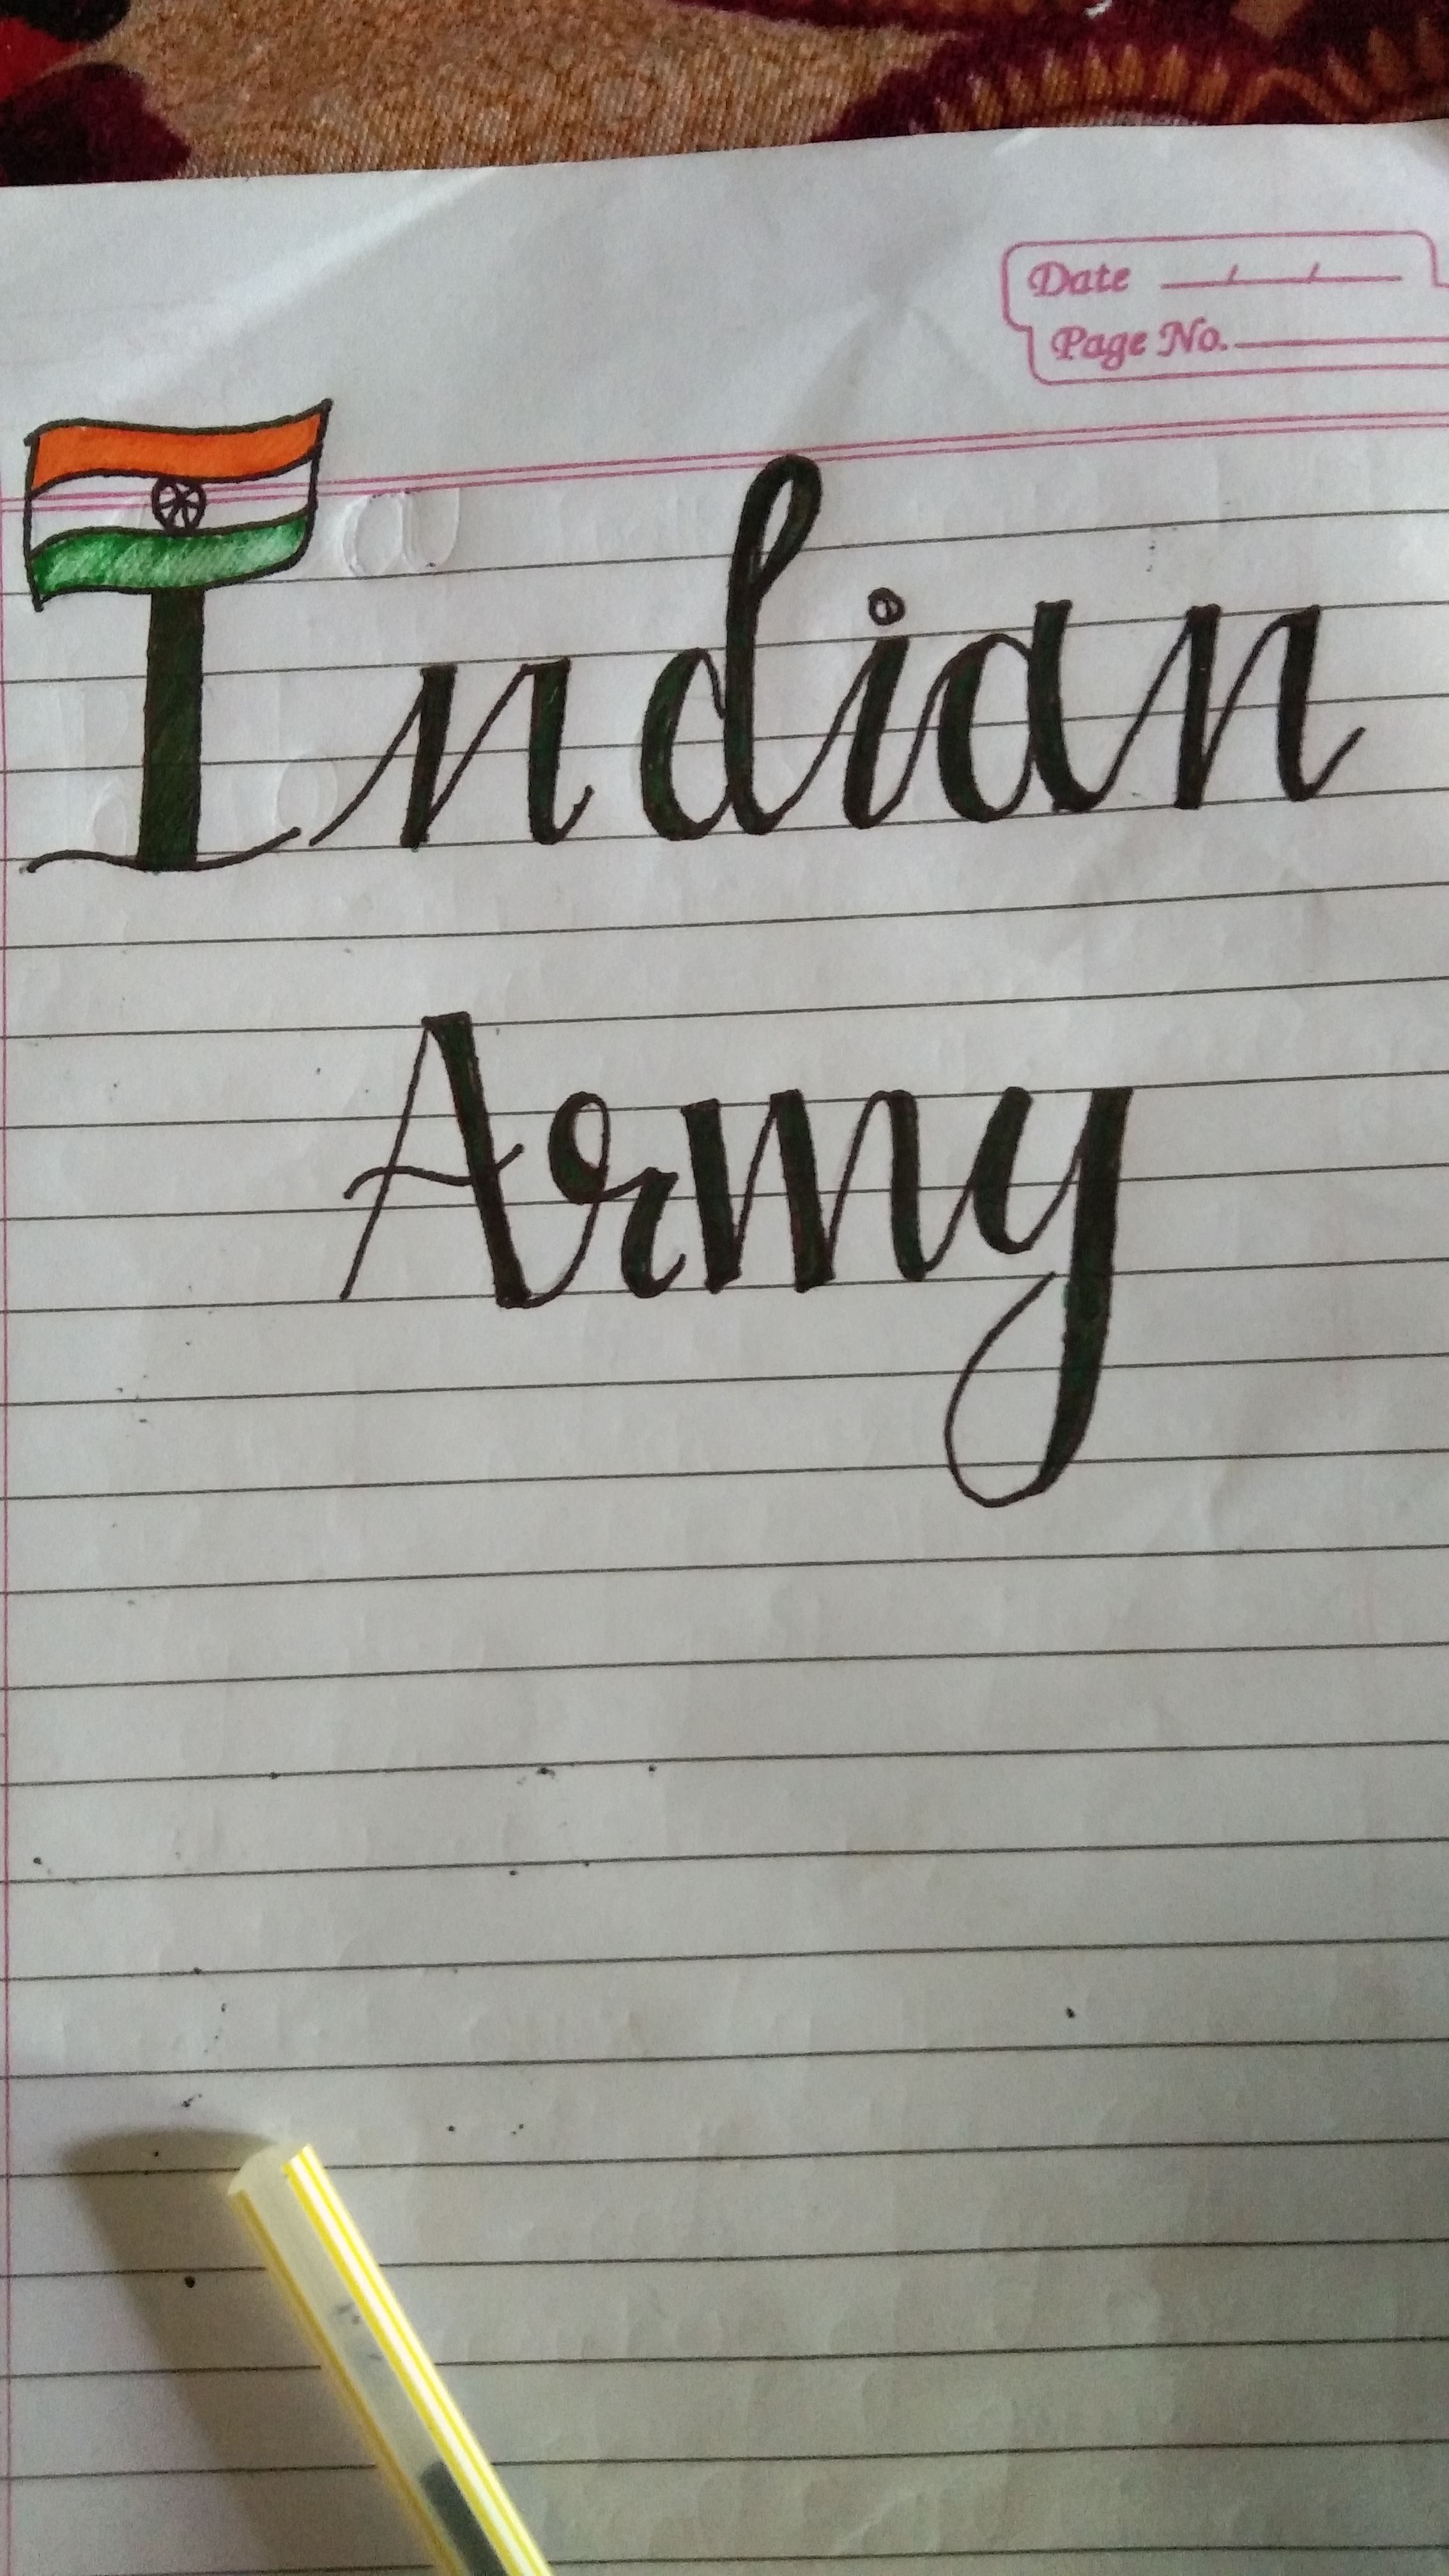 Date
Page No.
Indian
Army